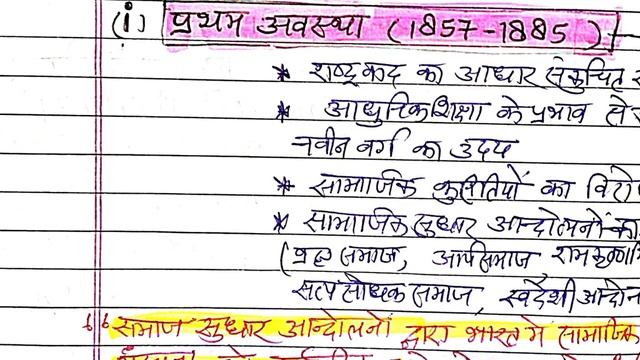 (i) प्रथम अवस्था (1857-1885)
* राष्ट्रवाद का आधार संकुचित
* आधुनिकशिक्षा के प्रभाव से
नवीन वर्ग का उदय
* सामाजिक कुरीतियों का विरो
* सामाजिक सुधार आन्दोलनों का
(ब्रह्म समाज, आर्यसमाज रामकृष्ण मि
सत्य सोधक समाज, स्वदेशी आन्दोन
“समाज सुधार आन्दोलनों द्वारा भारत में सामाजिक